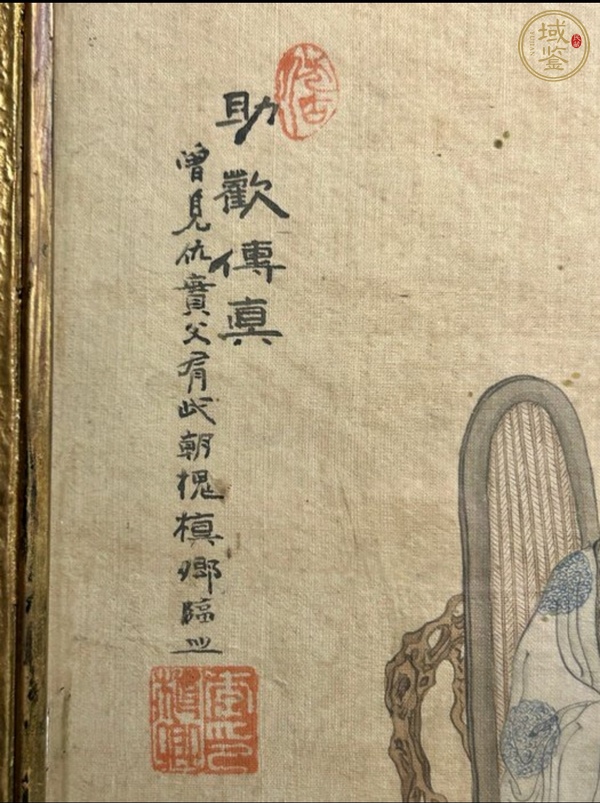 域鑒
助歡傳眞
曾見仇實父有此朝槐楨卿臨
楨卿